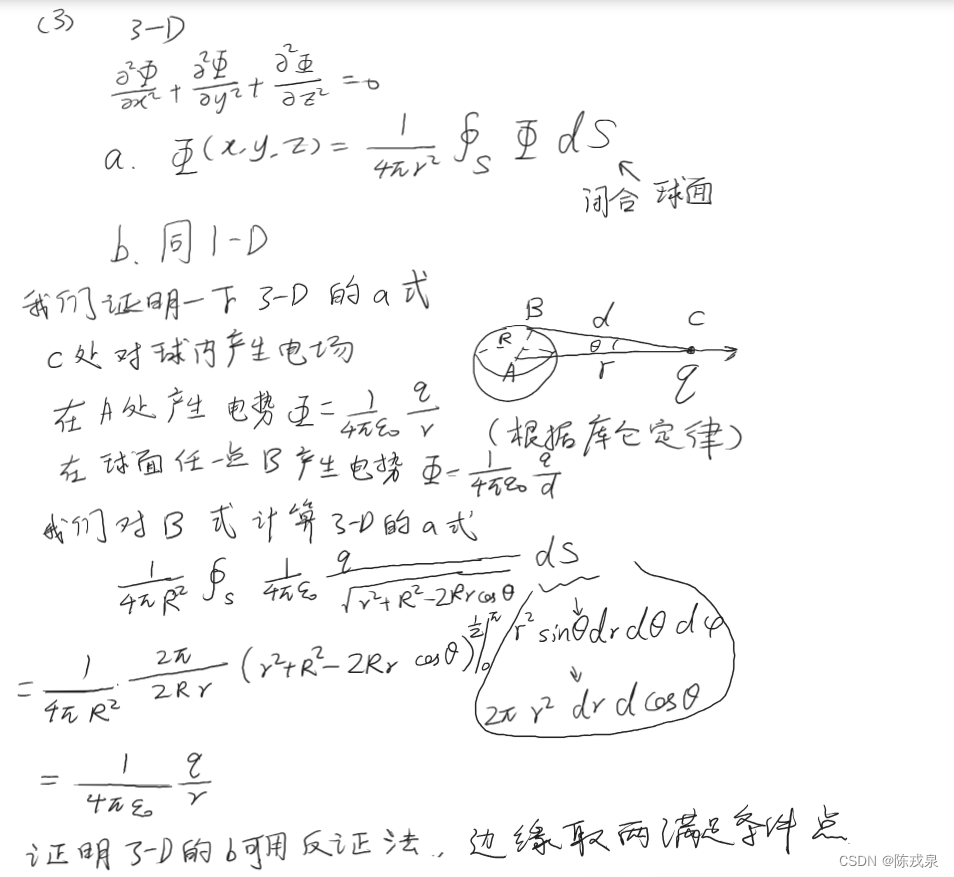 (3) 3-D
∂²Φ/∂x² + ∂²Φ/∂y² + ∂²Φ/∂z² = 0
a. Φ(x,y,z) = 1/(4πr²) ∮_S Φ dS
闭合球面
b. 同 1-D
我们证明一下 3-D 的 a 式
C 处对球内产生电场
在 A 处产生电势 Φ = 1/(4πε₀) q/r
(根据库仑定律)
在球面任一点 B 产生电势 Φ = 1/(4πε₀) q/d
B d C
R θ
A r q
我们对 B 式计算 3-D 的 a 式
1/(4πR²) ∮_S 1/(4πε₀) q/√(r²+R²-2Rrcosθ) dS
r² sinθ dr dθ dφ
= 1/(4πR²) · 2π/(2Rr) (r²+R²-2Rr cosθ)^{1/2} |₀^π
2π r² dr d cosθ
= 1/(4πε₀) q/r
证明 3-D 的 b 可用反证法, 边缘取两满足条件点
CSDN @陈戎泉